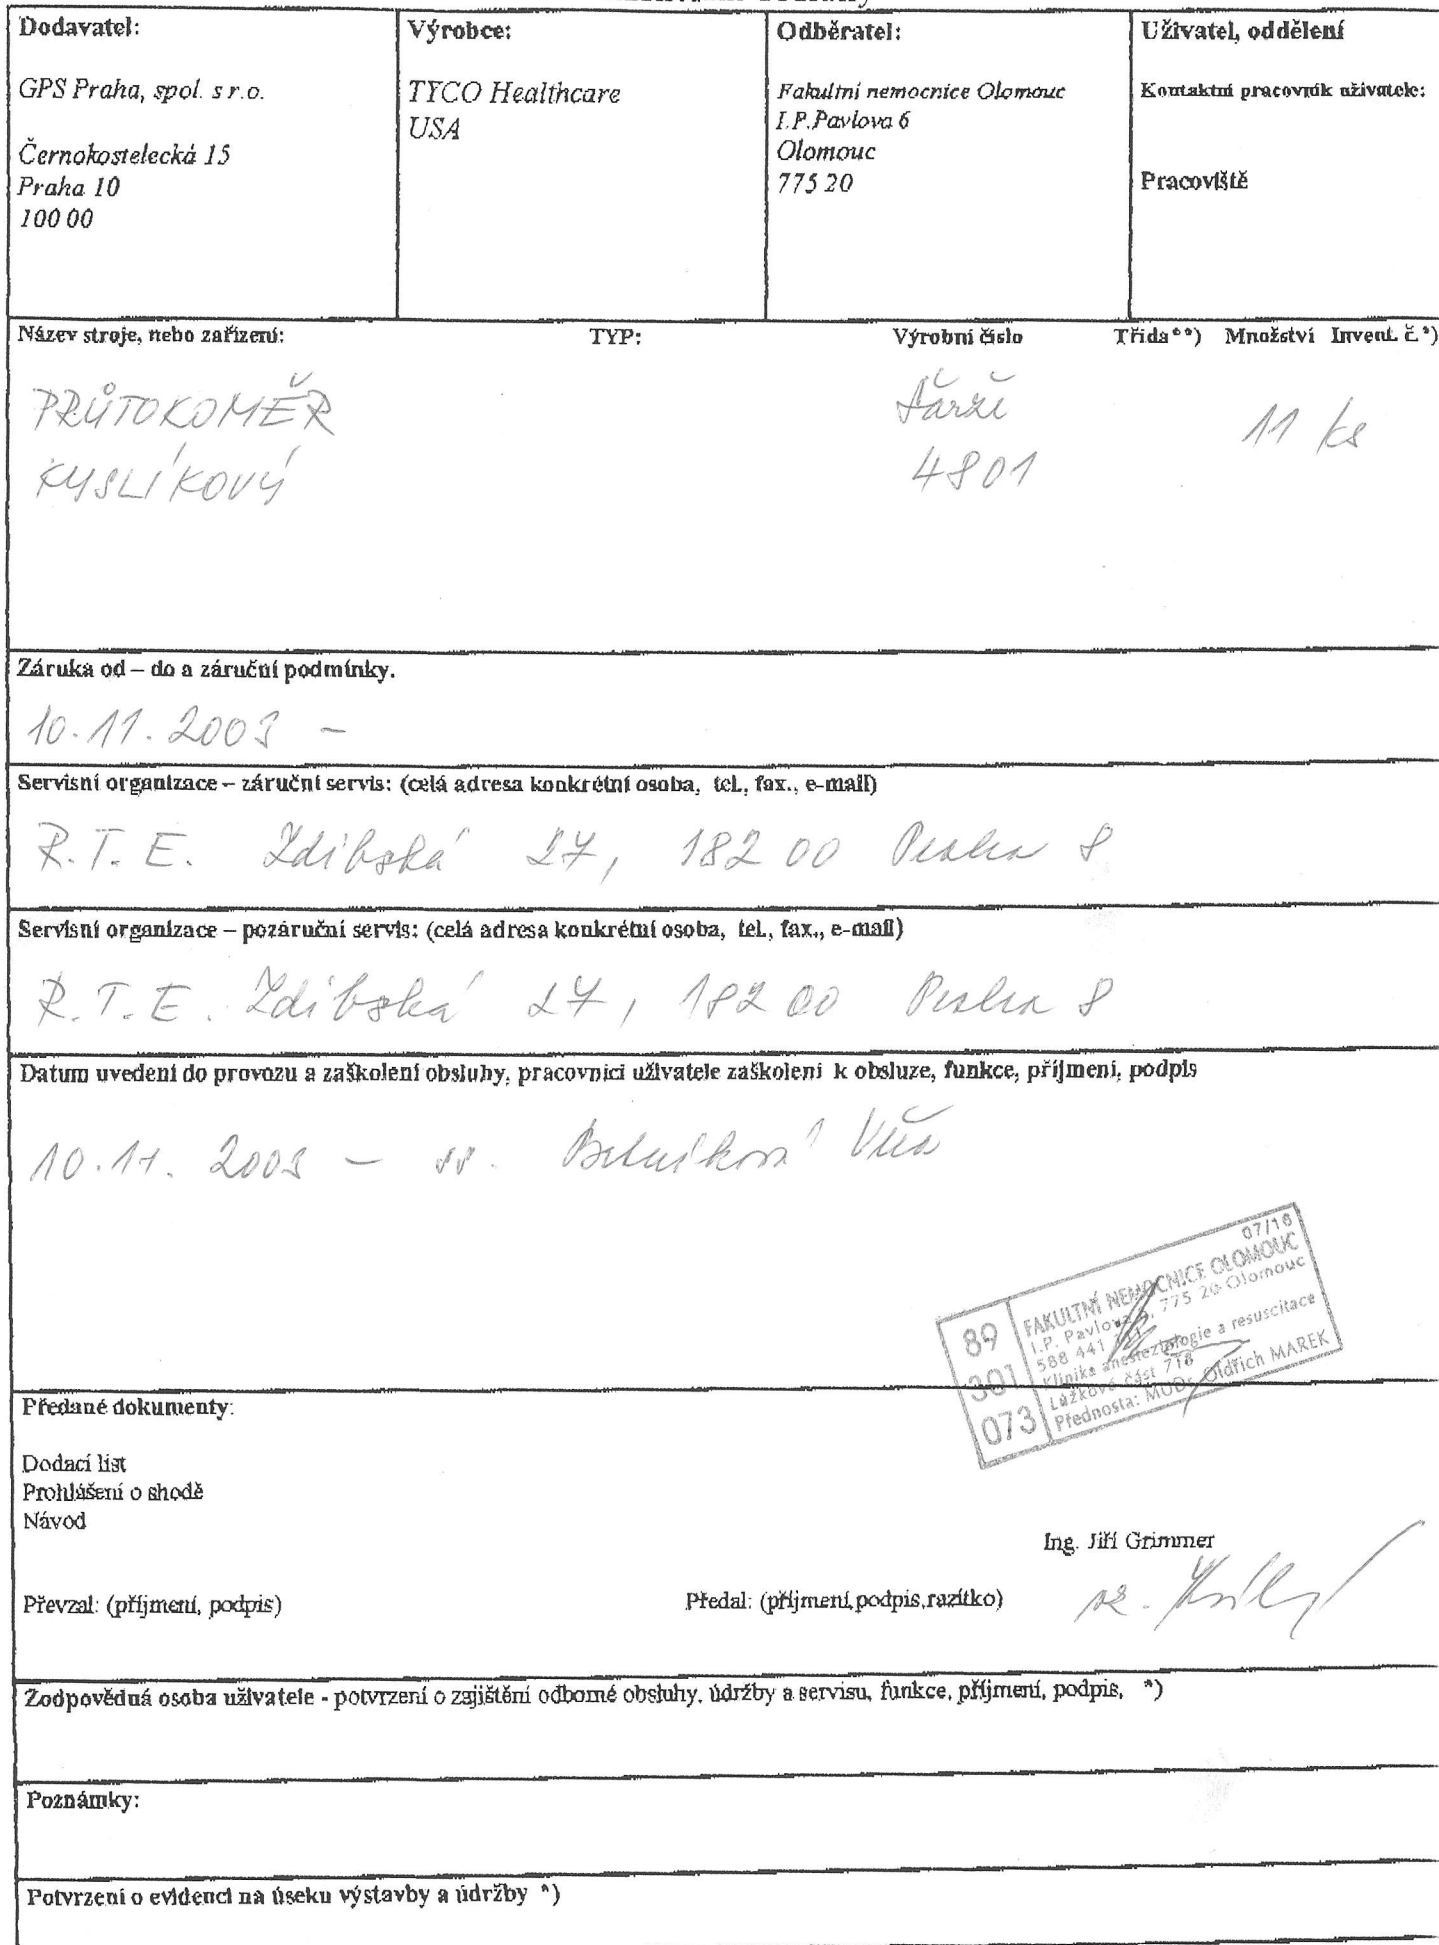 Dodavatel:
GPS Praha, spol. s r.o.
Černokostelecká 15
Praha 10
100 00
Výrobce:
TYCO Healthcare
USA
Odběratel:
Fakultní nemocnice Olomouc
I.P.Pavlova 6
Olomouc
775 20
Uživatel, oddělení
Kontaktní pracovník uživatele:
Pracoviště
Název stroje, nebo zařízení: TYP: Výrobní číslo Třída**) Množství Invent. č.*)
PRŮTOKOMĚR šarže 11 ks
KYSLÍKOVÝ 4801
Záruka od – do a záruční podmínky.
10.11.2003 –
Servisní organizace – záruční servis: (celá adresa konkrétní osoba, tel., fax., e-mail)
R.T.E. Zdibská 27, 182 00 Praha 8
Servisní organizace – pozáruční servis: (celá adresa konkrétní osoba, tel., fax., e-mail)
R.T.E. Zdibská 27, 182 00 Praha 8
Datum uvedení do provozu a zaškolení obsluhy, pracovníci uživatele zaškolení k obsluze, funkce, příjmení, podpis
10.11. 2003 –
07/16
89
301
073
FAKULTNÍ NEMOCNICE OLOMOUC
I.P. Pavlova 6, 775 20 Olomouc
588 441
Klinika anesteziologie a resuscitace
Lůžková část 718
Přednosta: MUDr. Oldřich MAREK
Předané dokumenty:
Dodací list
Prohlášení o shodě
Návod
Ing. Jiří Grimmer
Převzal: (příjmení, podpis) Předal: (příjmení,podpis,razítko)
Zodpovědná osoba uživatele - potvrzení o zajištění odborné obsluhy, údržby a servisu, funkce, příjmení, podpis, *)
Poznámky:
Potvrzení o evidenci na úseku výstavby a údržby *)